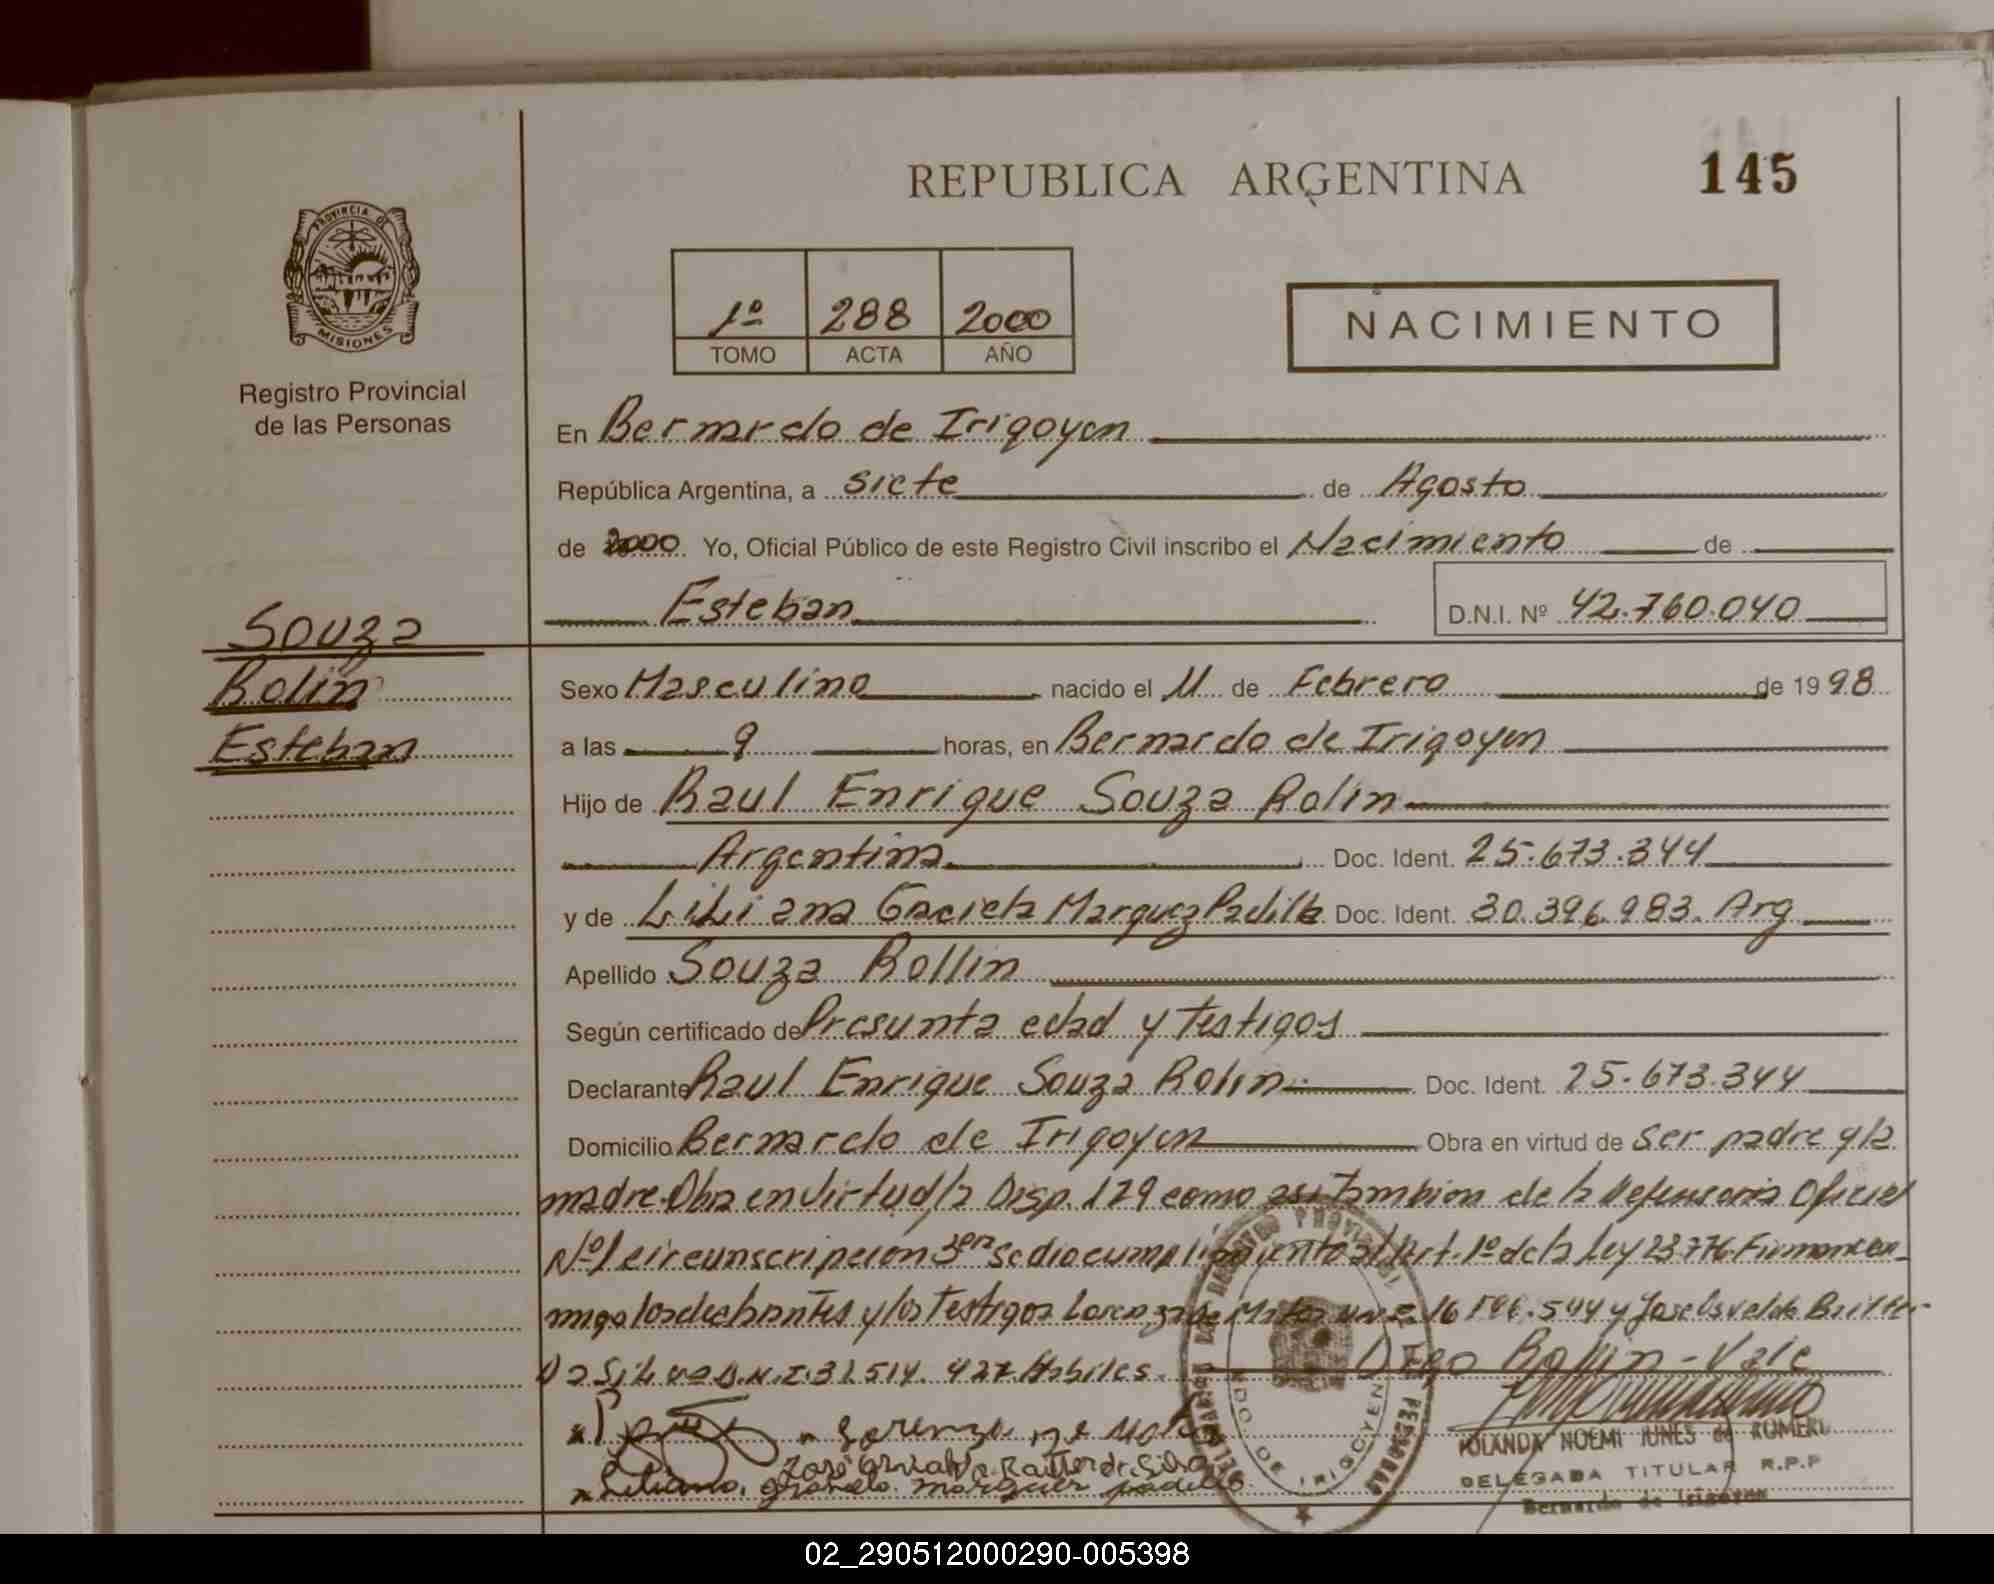 REPUBLICA ARGENTINA
145
PROVINCIA DE MISIONES
Registro Provincial
de las Personas
1º 288 2000
TOMO ACTA AÑO
NACIMIENTO
En Bernardo de Irigoyen
República Argentina, a siete de Agosto
de 2000 Yo, Oficial Público de este Registro Civil inscribo el Nacimiento de
Esteban D.N.I. Nº 42.760.040
Souza
Rolin
Esteban
Sexo Masculino nacido el 11 de Febrero de 1998
a las 9 horas, en Bernardo de Irigoyen
Hijo de Raul Enrique Souza Rolin
Argentina Doc. Ident. 25.673.344
y de Liliana Graciela Marquez Padilla Doc. Ident. 30.396.983. Arg
Apellido Souza Rollin
Según certificado de Presunta edad y testigos
Declarante Raul Enrique Souza Rolin Doc. Ident. 25.673.344
Domicilio Bernardo de Irigoyen Obra en virtud de ser padre y la
madre. Obra en virtud la Disp. 129 como asi tambien de la Defensoria Oficial
Nº 1 circunscripcion 3era se dio cumplimiento al Art. 1º de la Ley 23.776 Firman con
migo los declarantes y los testigos Lorenza de 16 544 y Jose Osvaldo
Da Silva D.N.I. 31.514.427 Habiles. Rollin - Vale
Lorenza de
de Silva
Liliana graciela marquez padilla
REGISTRO PROVINCIAL DE LAS PERSONAS
BERNARDO DE IRIGOYEN
IOLANDA NOEMI JUNES de ROMERO
DELEGADA TITULAR R.P.P
Bernardo de Irigoyen
02_290512000290-005398